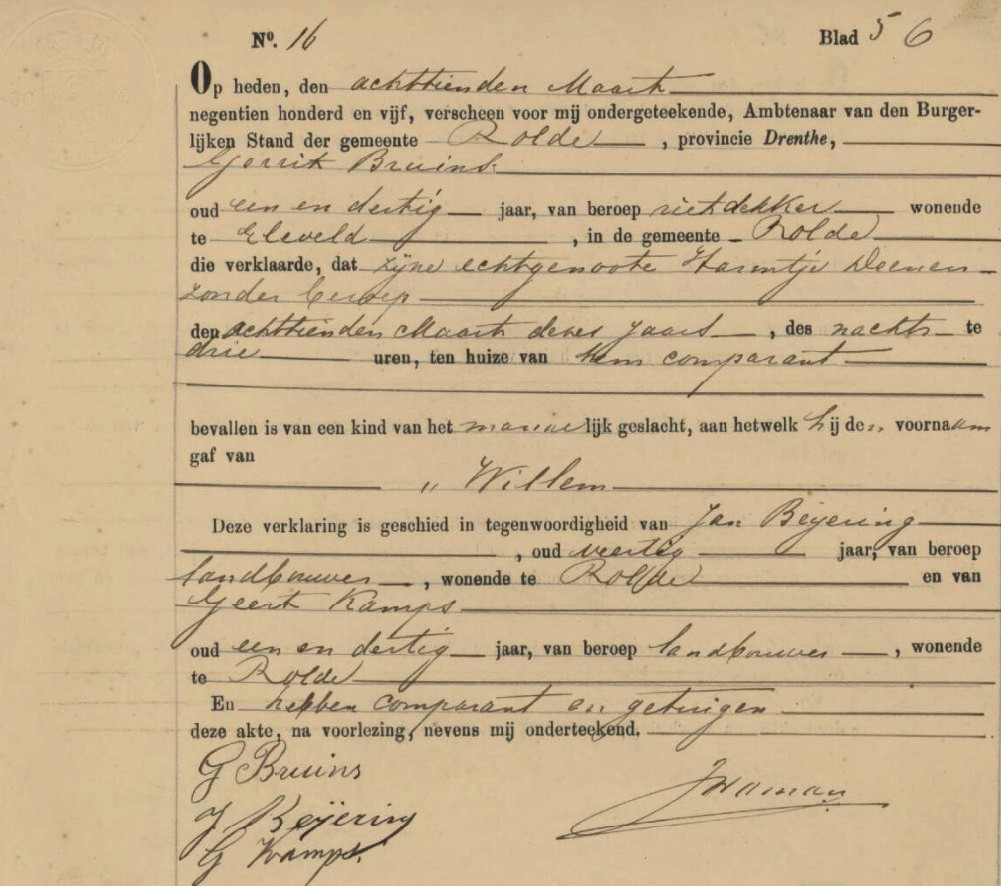 Nº. 16 Blad 5 6
Op heden, den achttienden Maart
negentien honderd en vijf, verscheen voor mij ondergeteekende, Ambtenaar van den Burger-
lijken Stand der gemeente Rolde, provincie Drenthe,
Gerrit Bruins
oud een en dertig jaar, van beroep rietdekker wonende
te Eleveld, in de gemeente Rolde
die verklaarde, dat zijne echtgenoote Harmtje Deenen
zonder beroep
den achttienden Maart dezes jaars, des nachts te
drie uren, ten huize van hem comparant
bevallen is van een kind van het mannelijk geslacht, aan hetwelk hij den voornaam
gaf van
„ Willem
Deze verklaring is geschied in tegenwoordigheid van Jan Beijering
, oud veertig jaar, van beroep
landbouwer, wonende te Rolde en van
Geert Kamps
oud een en dertig jaar, van beroep landbouwer, wonende
te Rolde
En hebben comparant en getuigen
deze akte, na voorlezing, nevens mij onderteekend.
G Bruins
J Beijering
G Kamps.